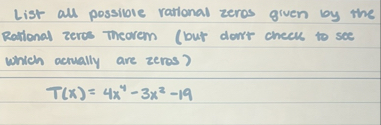 List all possible rational zeros given by the
Rational Zeros Theorem (but don't check to see
which actually are zeros)
T(x) = 4x⁴ - 3x² - 19